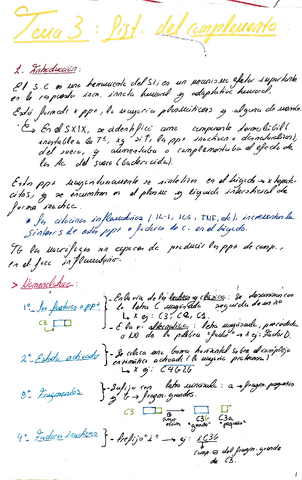 Tema 3: Sist. del complemento
1. Introducción:
El S.C es una herramienta del SI es un mecanismo efector importante
en la respuesta inm. innata humoral y adaptativa humoral.
Está formado x ppt, la mayoría plasmáticas y alguna de membr.
En el SXIX, se identificó como componente termolábil (
inestable a la Tª,
del suero, y aumentaba o complementaba el efecto de
los Ac del suero (bactericida).
Estas ppts mayoritariamente se sintetizan en el hígado x hepato-
citos, y se encuentran en el plasma y líquido intersticial de
forma inactiva.
* las citocinas inflamatorias (IL-1, IL6, TNF, etc), incrementan la
síntesis de estas ppts o factores de c. en el hígado.
Tb los macrófagos son capaces de producir las ppts de comp.,
en el foco inflamatorio.
> Nomenclatura:
1º- los factores o ppts - En la vía de las lectinas y clásica: Se denominan con
la letra C mayúscula seguida de un nº
↳ x ej: C3, C2, C1.
C3 - En la v. alternativa: letra mayúscula, precedida
x la palabra "factor" → x ej: Factor D.
2º- Estado activado - Se coloca una barra horizontal sobre el complejo
enzimático activado
↳ x ej: C4b2b
3º- Fragmentados - Sufijo con letra minúscula: a → fragm. pequeños
y b → fragm. grandes.
C3 → C3b "grande" C3a "pequeño"
4º- Factores inactivos - Prefijo "i" → ej: iC3b
del fragm. grande
de C3.